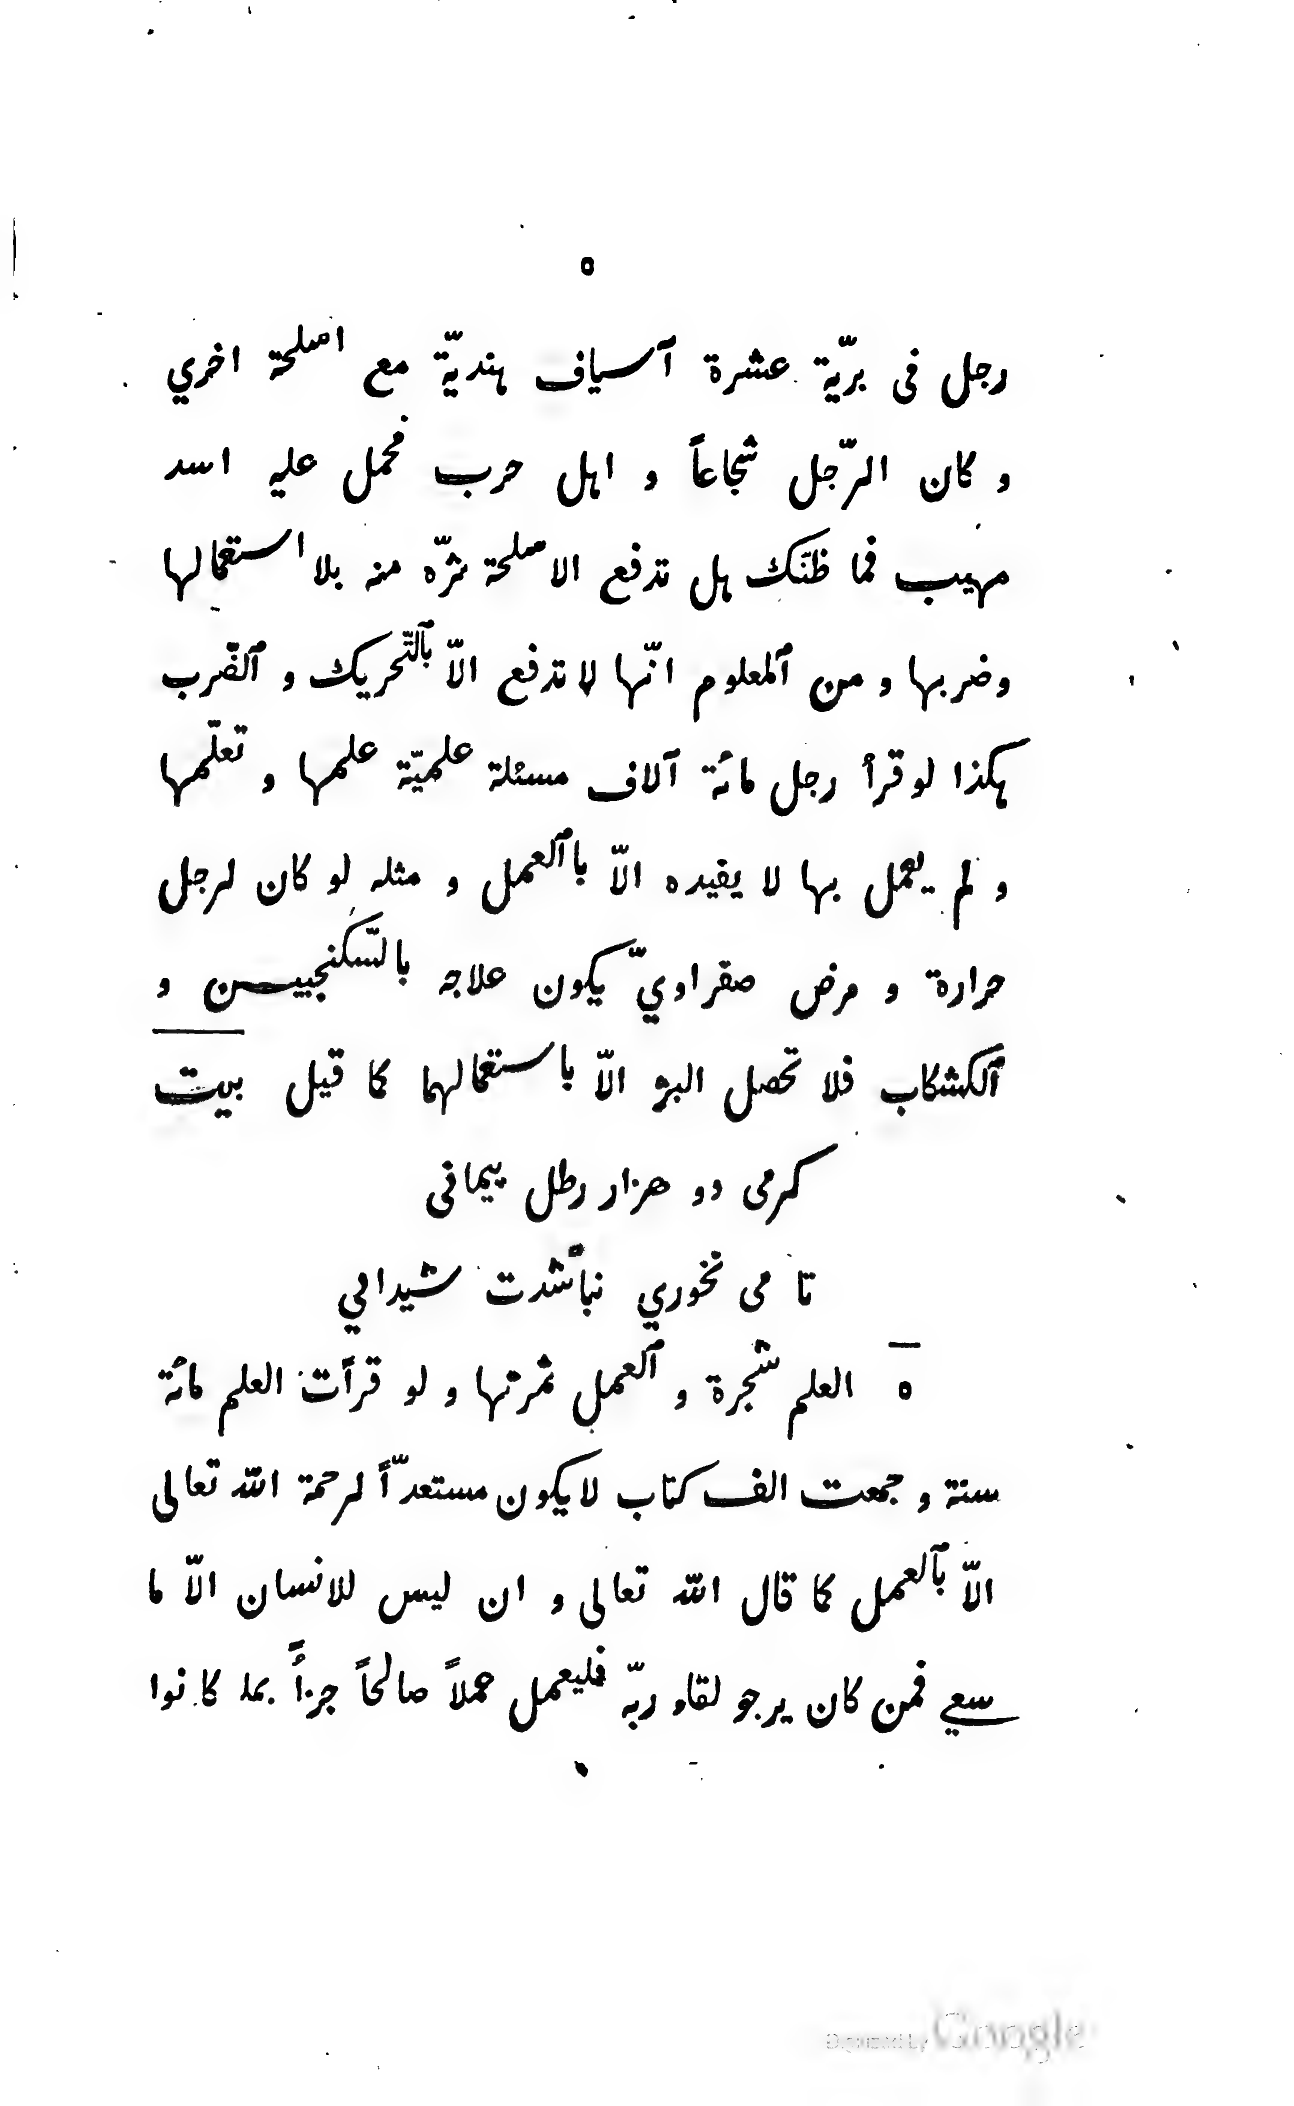 ٥
رجل فى بريّة عشرة آسياف هنديّة مع اصلحة اخري
و كان الرّجل شجاعاً و اهل حرب فحمل عليه اسد
مهيب فما ظنّك هل تدفع الاصلحة شرّه منه بلا استعمالها
وضربها و من ٱلمعلوم انّها لا تدفع الّا بٱلتّحريك و ٱلضّرب
هكذا لو قرأ رجل مائة آلاف مسئلة علميّة علمها و تعلّمها
و لم يعمل بها لا يفيده الّا باٱلعمل و مثله لو كان لرجل
حرارة و مرض صفراويّ يكون علاجه بالسّكنجبين و
ٱلكشكاب فلا تحصل البرؤ الّا باستعمالهما كما قيل بيت
كرمى دو هزار رطل پيمافى
تا مى نخوري نباشدت شيدافي
٥ العلم شجرة و ٱلعمل ثمرتها و لو قرأت العلم مائة
سنة و جمعت الف كتاب لا يكون مستعدّاً لرحمة الله تعالى
الّا بٱلعمل كما قال الله تعالى و ان ليس للانسان الّا ما
سعي فمن كان يرجو لقاء ربّه فليعمل عملاً صالحاً جزاً بما كانوا
Digitized by Google